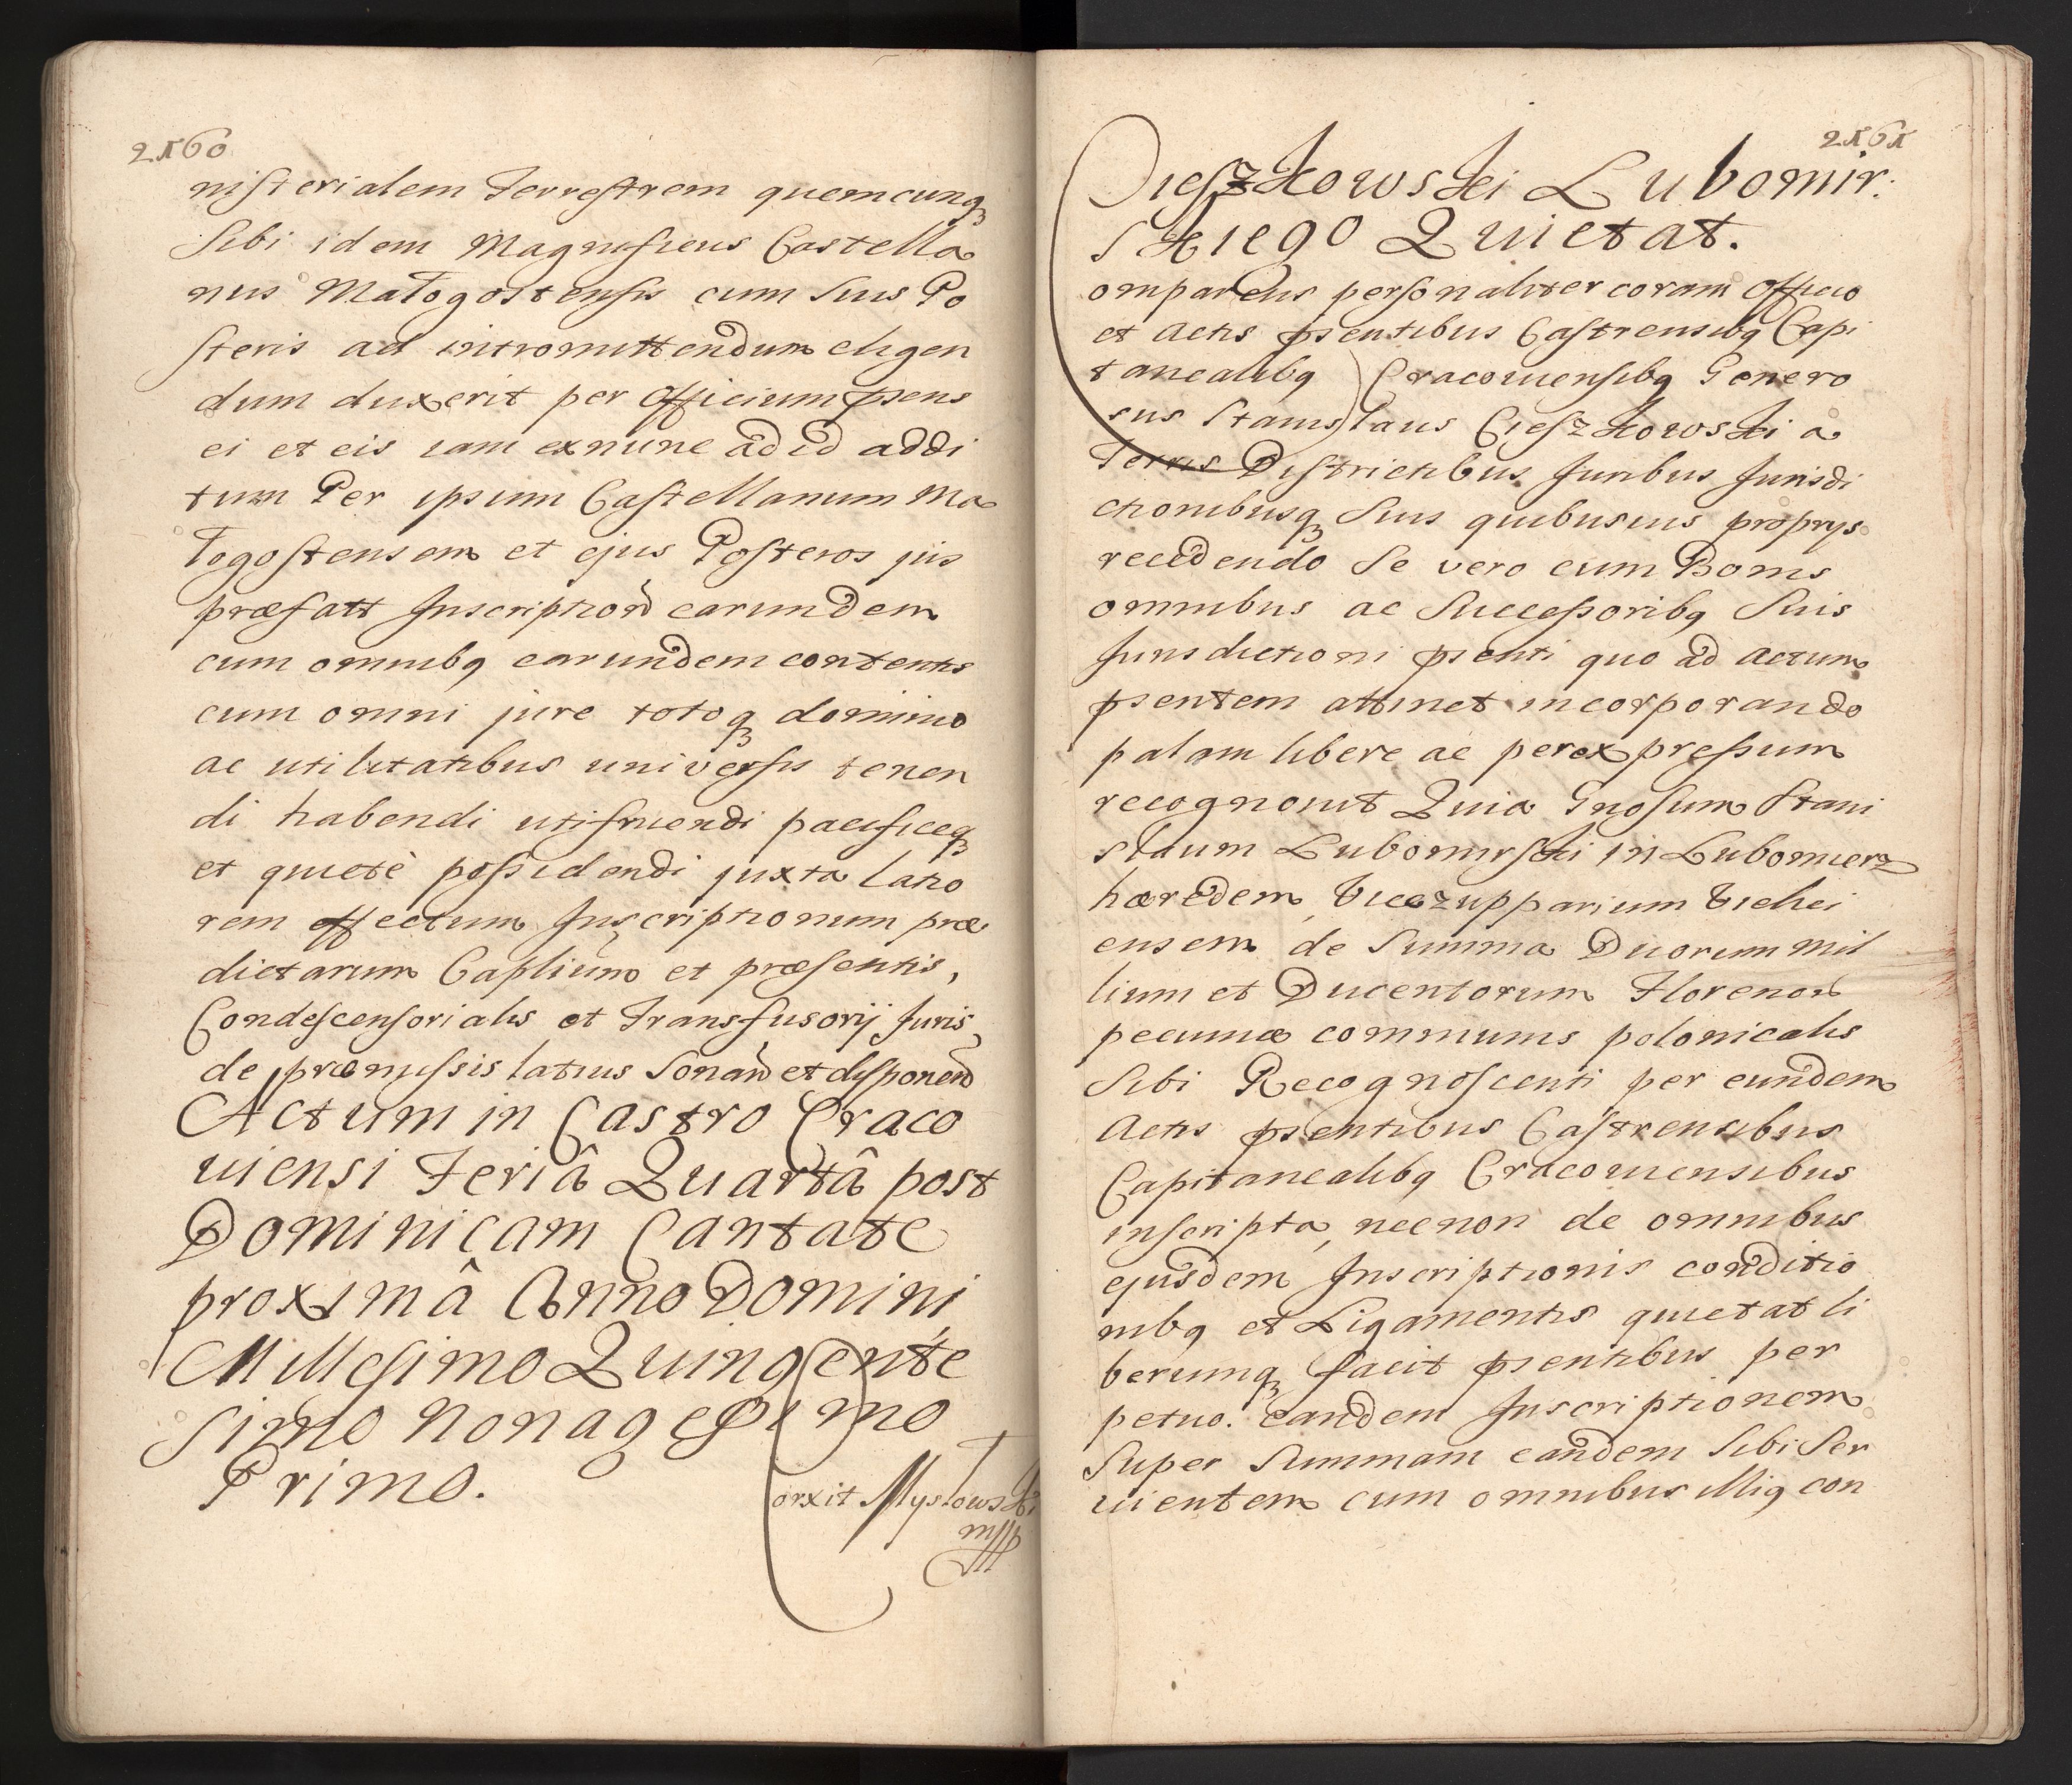 2160
nisterialem Terrestrem quemcunq3
Sibi idem Magnificus Castella
nus Małogostensis cum Suis Po
steris ad intromittendum eligen
dum duxerit per Officium psens
ei et eis iam exnunc ad id addi
tum Per ipsum Castellanum Ma
łogostensem et ejus Posteros jus
præfatt Inscription earundem
cum omnibq earundem contentis
cum omni jure totoq3 dominio
ac utilitatibus universis tenen
di habendi utifruendi pacificeq3
et quietè possidendi juxta latio
rem effectum Inscriptionum præ
dictarum Capliumo et præsentis,
Condescensorialis et Transfusorij Juris
de præmissis latius Sonan et disponen
Actum in Castro Craco
uiensi Feriâ Quartâ post
Dominicam Cantate
proximâ Anno Domini
Millesimo Quingente
simo Nonagesimo
Primo.
Corxit Mysłowski
mpp
2161
Cieszkowski Lubomir:
skiego Quietat.
omparens personaliter coram Officio
et Actis psentibus Castrensibq Capi
tanealibq Cracouiensibq Genero
sus Stanislaus Cieszkowski a
Terris Districtibus Juribus Jurisdi
ctionibusq3 Suis quibusuis proprys
recedendo Se vero cum Bonis
omnibus ac Successoribq Suis
Jurisdictioni psenti quo ad Actum
psentem attinet incorporando
palam libere ac per expressum
recognouit Quia Gnosum Stani
slaum Lubomirski in Lubomierz
hæredem, Vicezupparium Vielici
ensem de Summa Duorum Mil
lium et Ducentorum Florenor
pecuniæ communis polonicalis
Sibi Recognoscenti per eundem
Actis psentibus Castrensibus
Capitanealibq Cracouiensibus
inscripta, necnon de omnibus
ejusdem Inscriptionis conditio
nibq et Ligamentis quietat li
berumq3 facit psentibus per
petuo. Eandem Inscriptionem
Super Summam eandem Sibi Ser
uientem cum omnibus illiq con